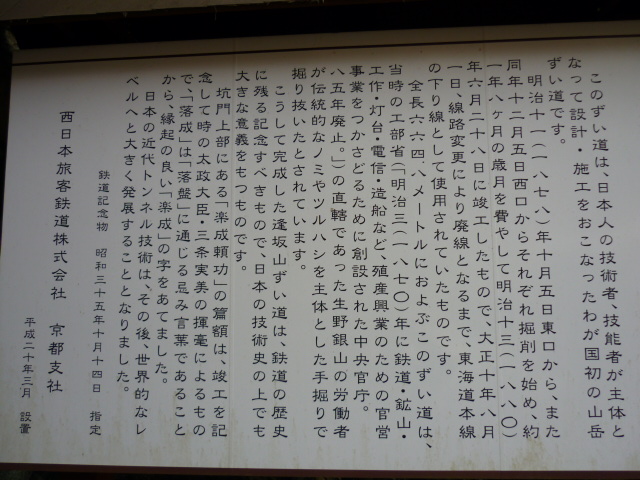 このずい道は、日本人の技術者、技能者が主体と
なって設計・施工をおこなったわが国初の山岳
ずい道です。
明治十一(一八七八)年十月五日東口から、また
同年十二月五日西口からそれぞれ掘削を始め、約
一年八ヶ月の歳月を費やして明治十三(一八八〇)
年六月二十八日に竣工したもので、大正十年八月
一日、線路変更により廃線となるまで、東海道本線
の下り線として使用されていたものです。
全長六六四.八メートルにおよぶこのずい道は、
当時の工部省(「明治三(一八七〇)年に鉄道・鉱山・
工作・灯台・電信・造船など、殖産興業のための官営
事業をつかさどるために創設された中央官庁。
八五年廃止。」)の直轄であった生野銀山の労働者
が伝統的なノミやツルハシを主体とした手掘りで
掘り抜いたとされています。
こうして完成した逢坂山ずい道は、鉄道の歴史
に残る記念すべきもので、日本の技術史の上でも
大きな意義をもつものです。
坑門上部にある「楽成頼功」の篇額は、竣工を記
念して時の太政大臣・三条実美の揮毫によるもの
で、「落成」は「落盤」に通じる忌み言葉であること
から、縁起の良い「楽成」の字をあてました。
日本の近代トンネル技術は、その後、世界的なレ
ベルへと大きく発展することとなりました。
鉄道記念物 昭和三十五年十月十四日 指定
西日本旅客鉄道株式会社 京都支社
平成二十年三月 設置